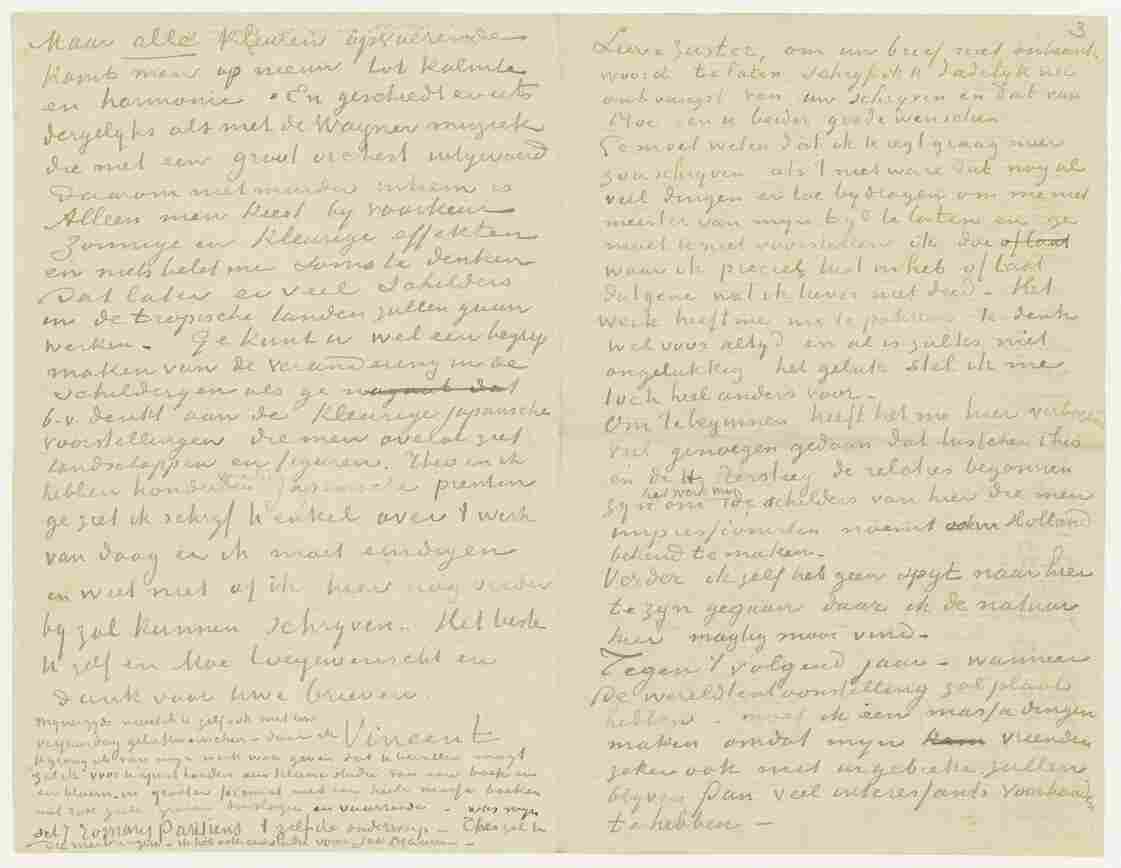 Maar alle kleuren opvoerende
komt men op nieuw tot kalmte
en harmonie. En geschiedt er iets
dergelyks als met de Wagner muziek
die met een groot orchest uitgevoerd
daarom niet minder intiem is
Alleen men kiest by voorkeur
zonnige en kleurige effekten
en niets belet me soms te denken
dat later er veel schilders
in de tropische landen zullen gaan
werken. Ge kunt u wel een begryp
maken van de verandering in de
schilderyen als ge
b.v. denkt aan de kleurige japansche
voorstellingen die men overal ziet
landschappen en figuren. Theo en ik
hebben honderden japansche prenten
ge ziet ik schryf U enkel over 't werk
van daag en ik moet eindigen
en weet niet of ik hier nog verder
by zal kunnen schryven. Het beste
U zelf en Moe toegewenscht en
dank voor uwe brieven
Vincent
verjaardag
Ik graag iets van myn werk wou geven dat U bevallen mogt
zal ik voor U apart houden een kleine studie van een boek en
een bloem in grooter formaat met een heele massa boeken
met rose gele groene omslagen en vuurroode was myn
schy Romans Parisiens 't zelfde onderwerp. Theo zal U
3
Lieve zuster, om uw brief niet onbeant-
woord te laten schryf ik U dadelyk na
ontvangst van uw schryven en dat van
Moe en u beider goede wenschen
Ge moet weten dat ik U regt graag meer
zou schryven als 't niet ware dat nog al
veel dingen er toe bydragen om me niet
meester van myn tyd te laten en ge
moet U niet voorstellen ik doe of laat
waar ik precies lust in heb of laat
datgene wat ik liever niet deed. Het
werk heeft me nu te pakken ik denk
wel voor altyd en al is zulks niet
ongelukkig het geluk stel ik me
toch heel anders voor.
Om te beginnen heeft het me hier
veel genoegen gedaan dat tusschen Theo
en de Hr Tersteeg de relaties begonnen
zyn om het werk van de schilders van hier die men
impressionisten noemt in Holland
bekend te maken.
Verder ik zelf heb geen spyt naar hier
te zyn gegaan daar ik de natuur
hier magtig mooi vind.
Tegen 't volgend jaar - wanneer
de wereldtentoonstelling zal plaats
hebben - moet ik een massa dingen
maken omdat myn vrienden
zeker ook niet in gebreke zullen
blyven van veel interessants voorhanden
te hebben -